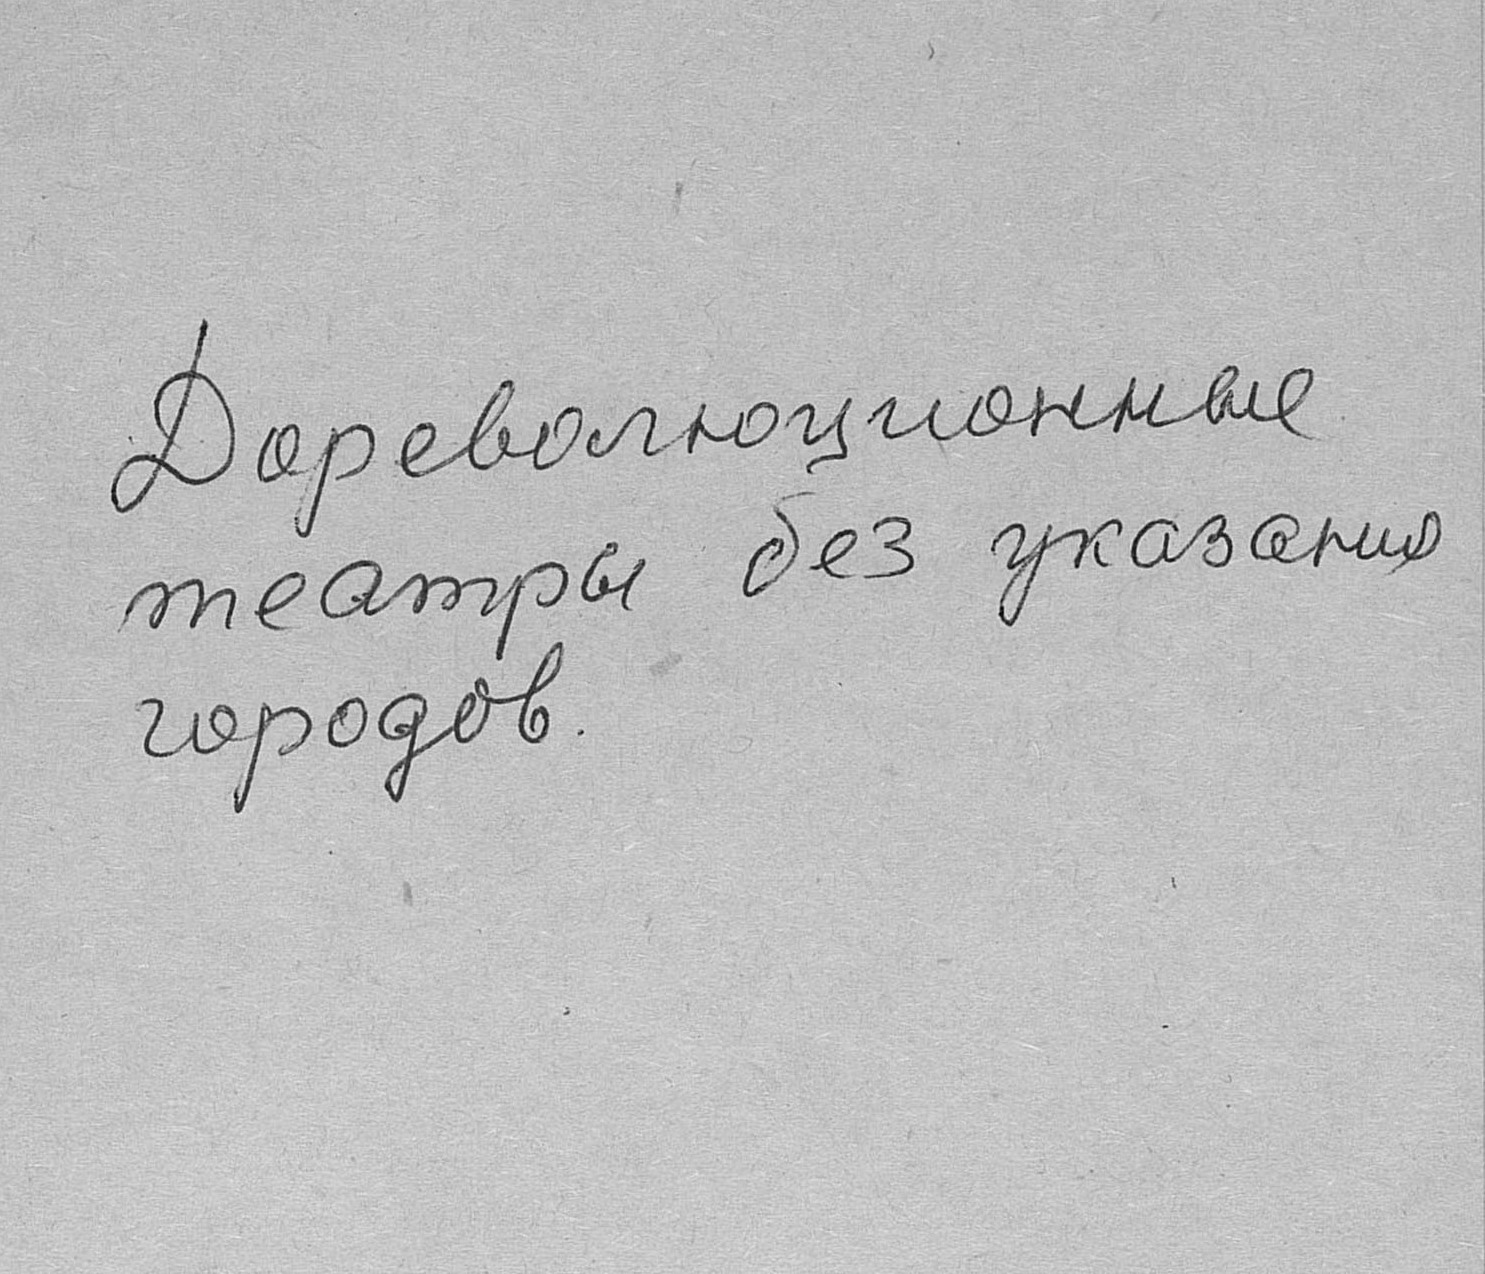 Дореволюционные
театры без указания
городов.